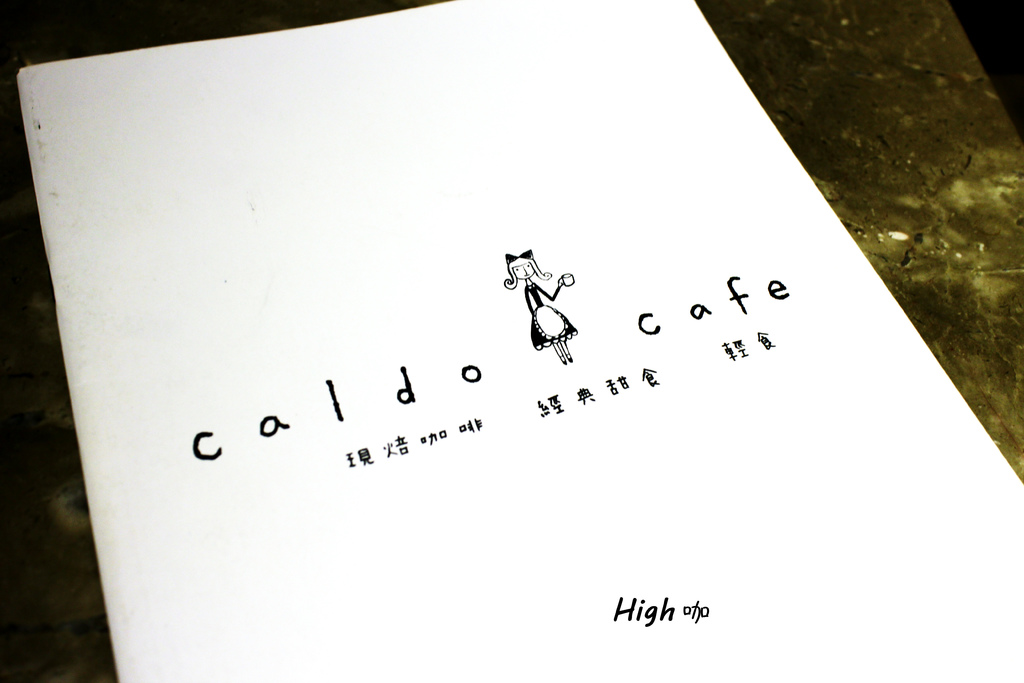 caldo cafe
現焙咖啡 經典甜食 輕食
High 咖